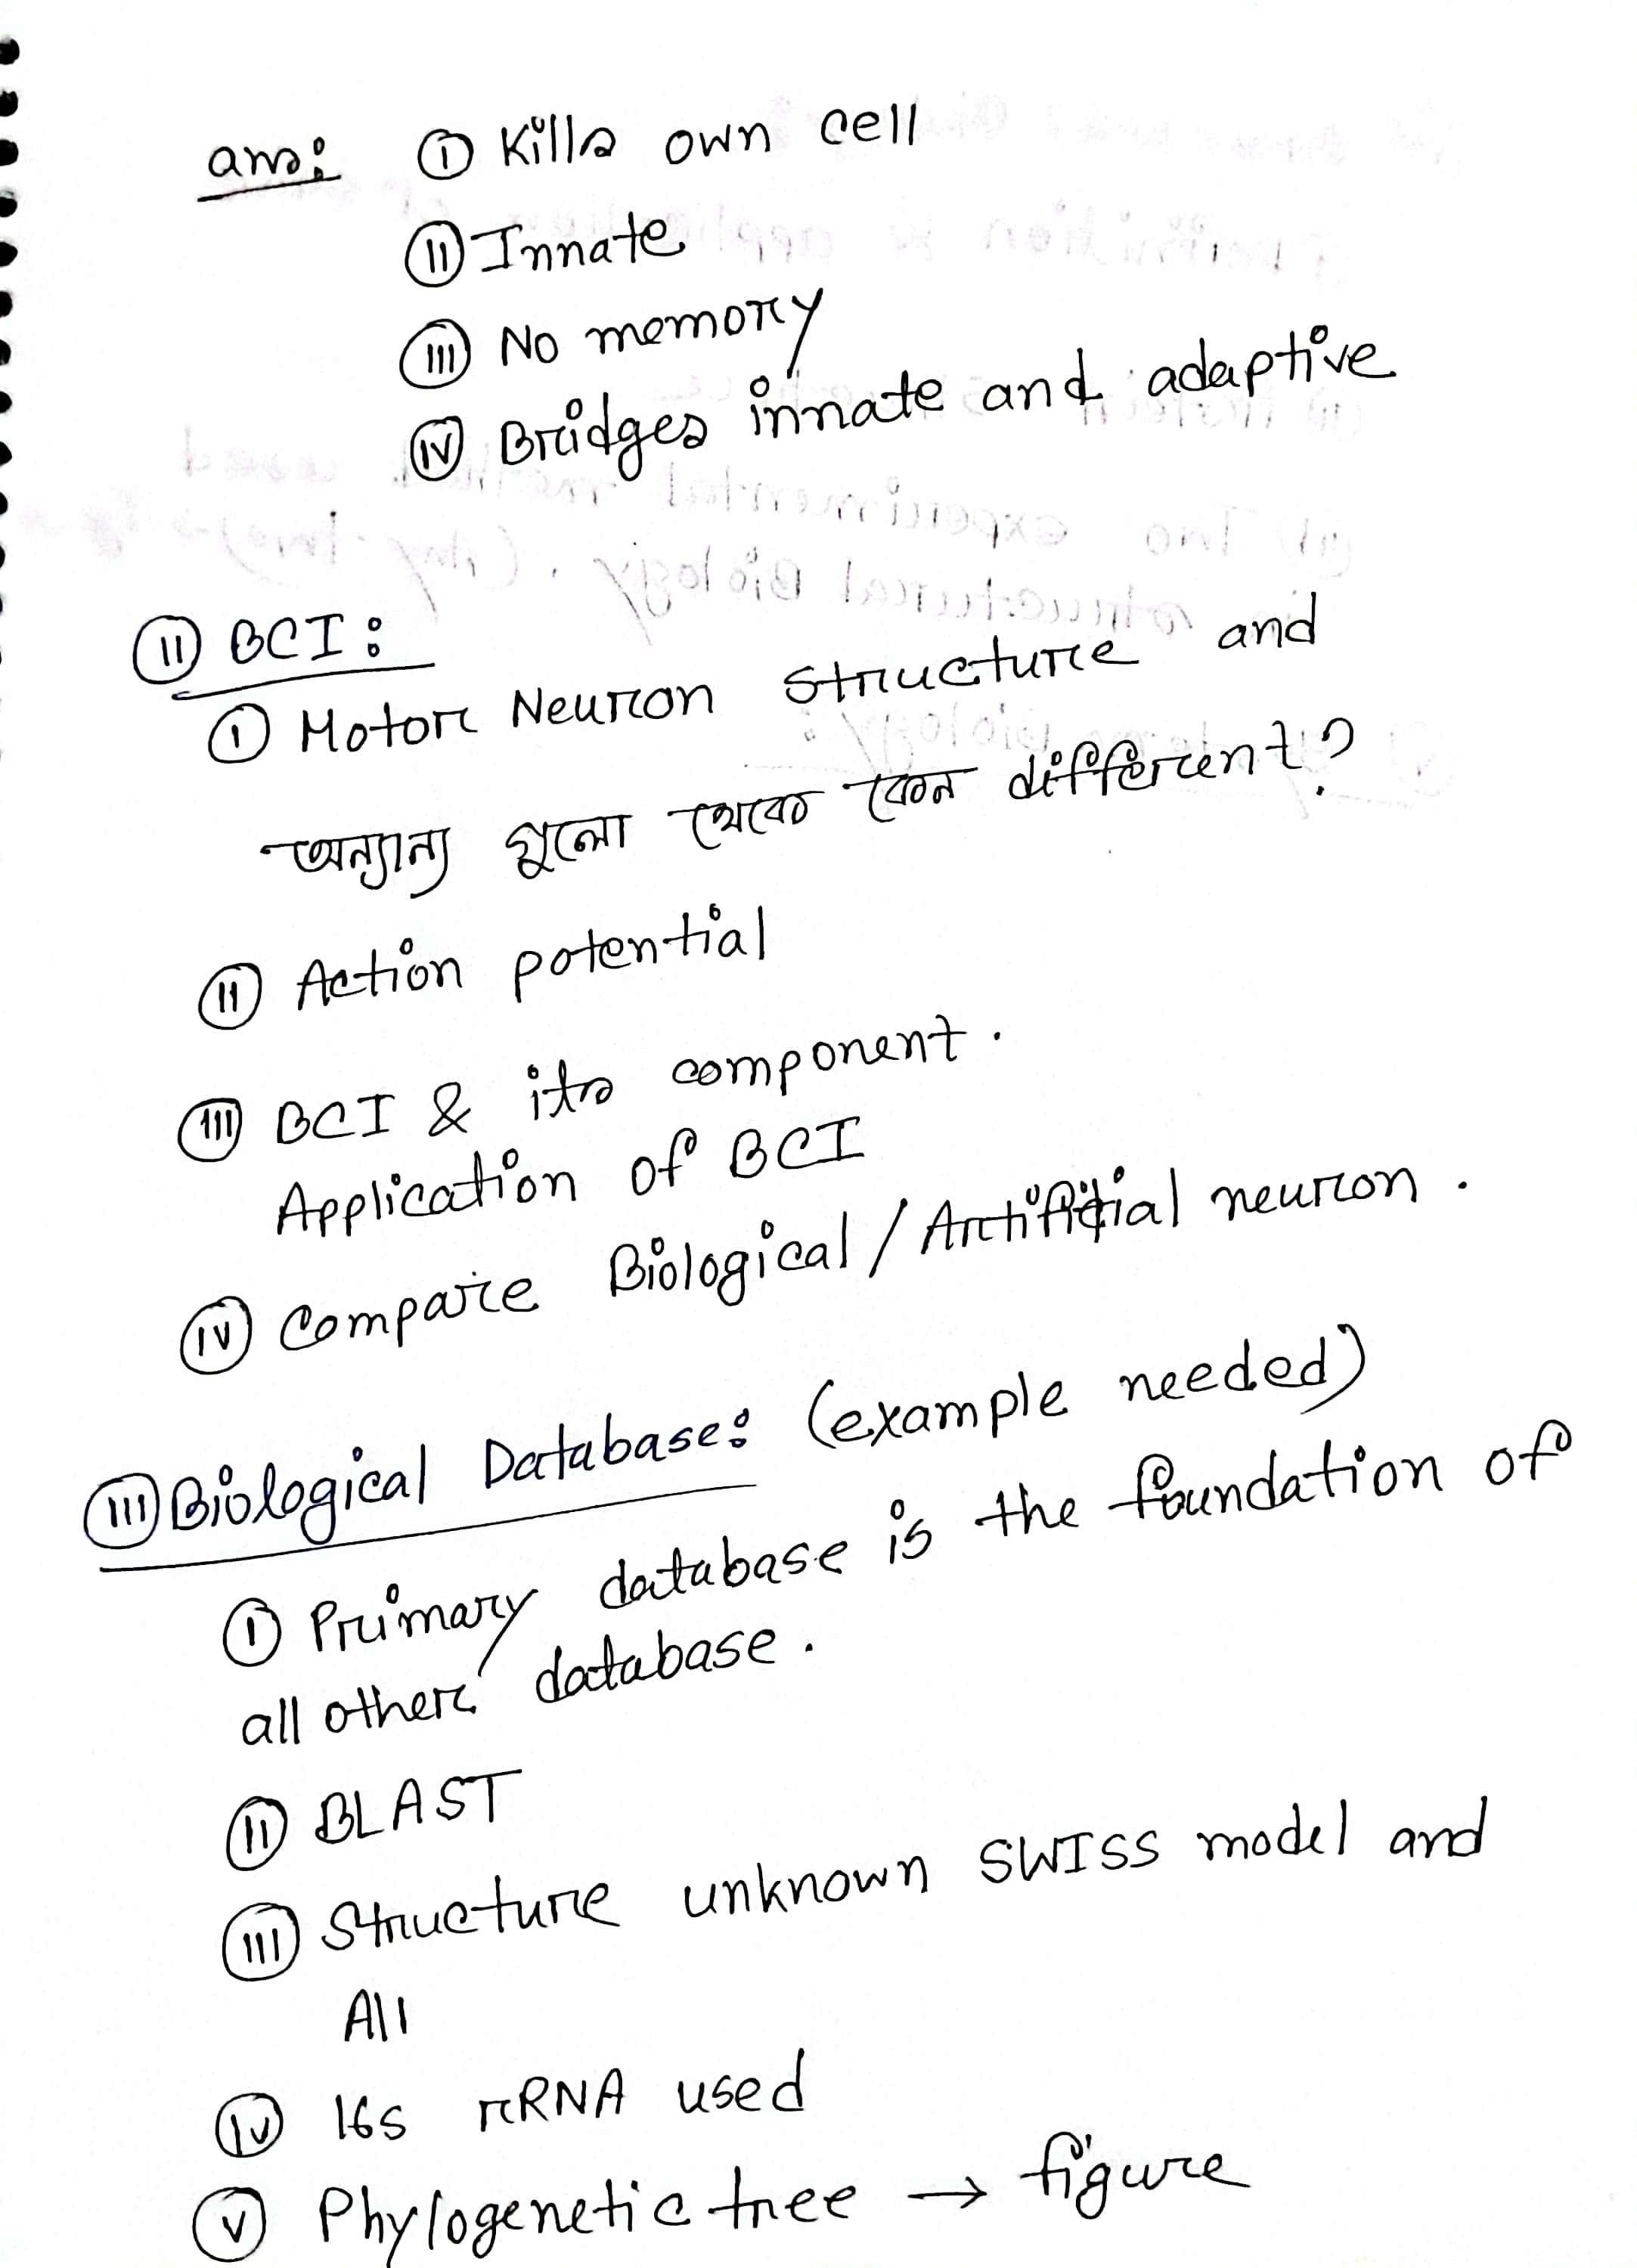 ans: (i) Kills own cell
(ii) Innate
(iii) No memory
(iv) Bridges innate and adaptive
(ii) BCI:
(i) Motor Neuron structure and
অন্যান্য গুলো থেকে কেন different?
(ii) Action potential
(iii) BCI & its component.
Application of BCI
(iv) Compare Biological/Artificial neuron.
(iii) Biological Database: (example needed)
(i) Primary database is the foundation of
all other database.
(ii) BLAST
(iii) Structure unknown SWISS model and
All
(iv) 16s rRNA used
(v) Phylogenetic tree → figure